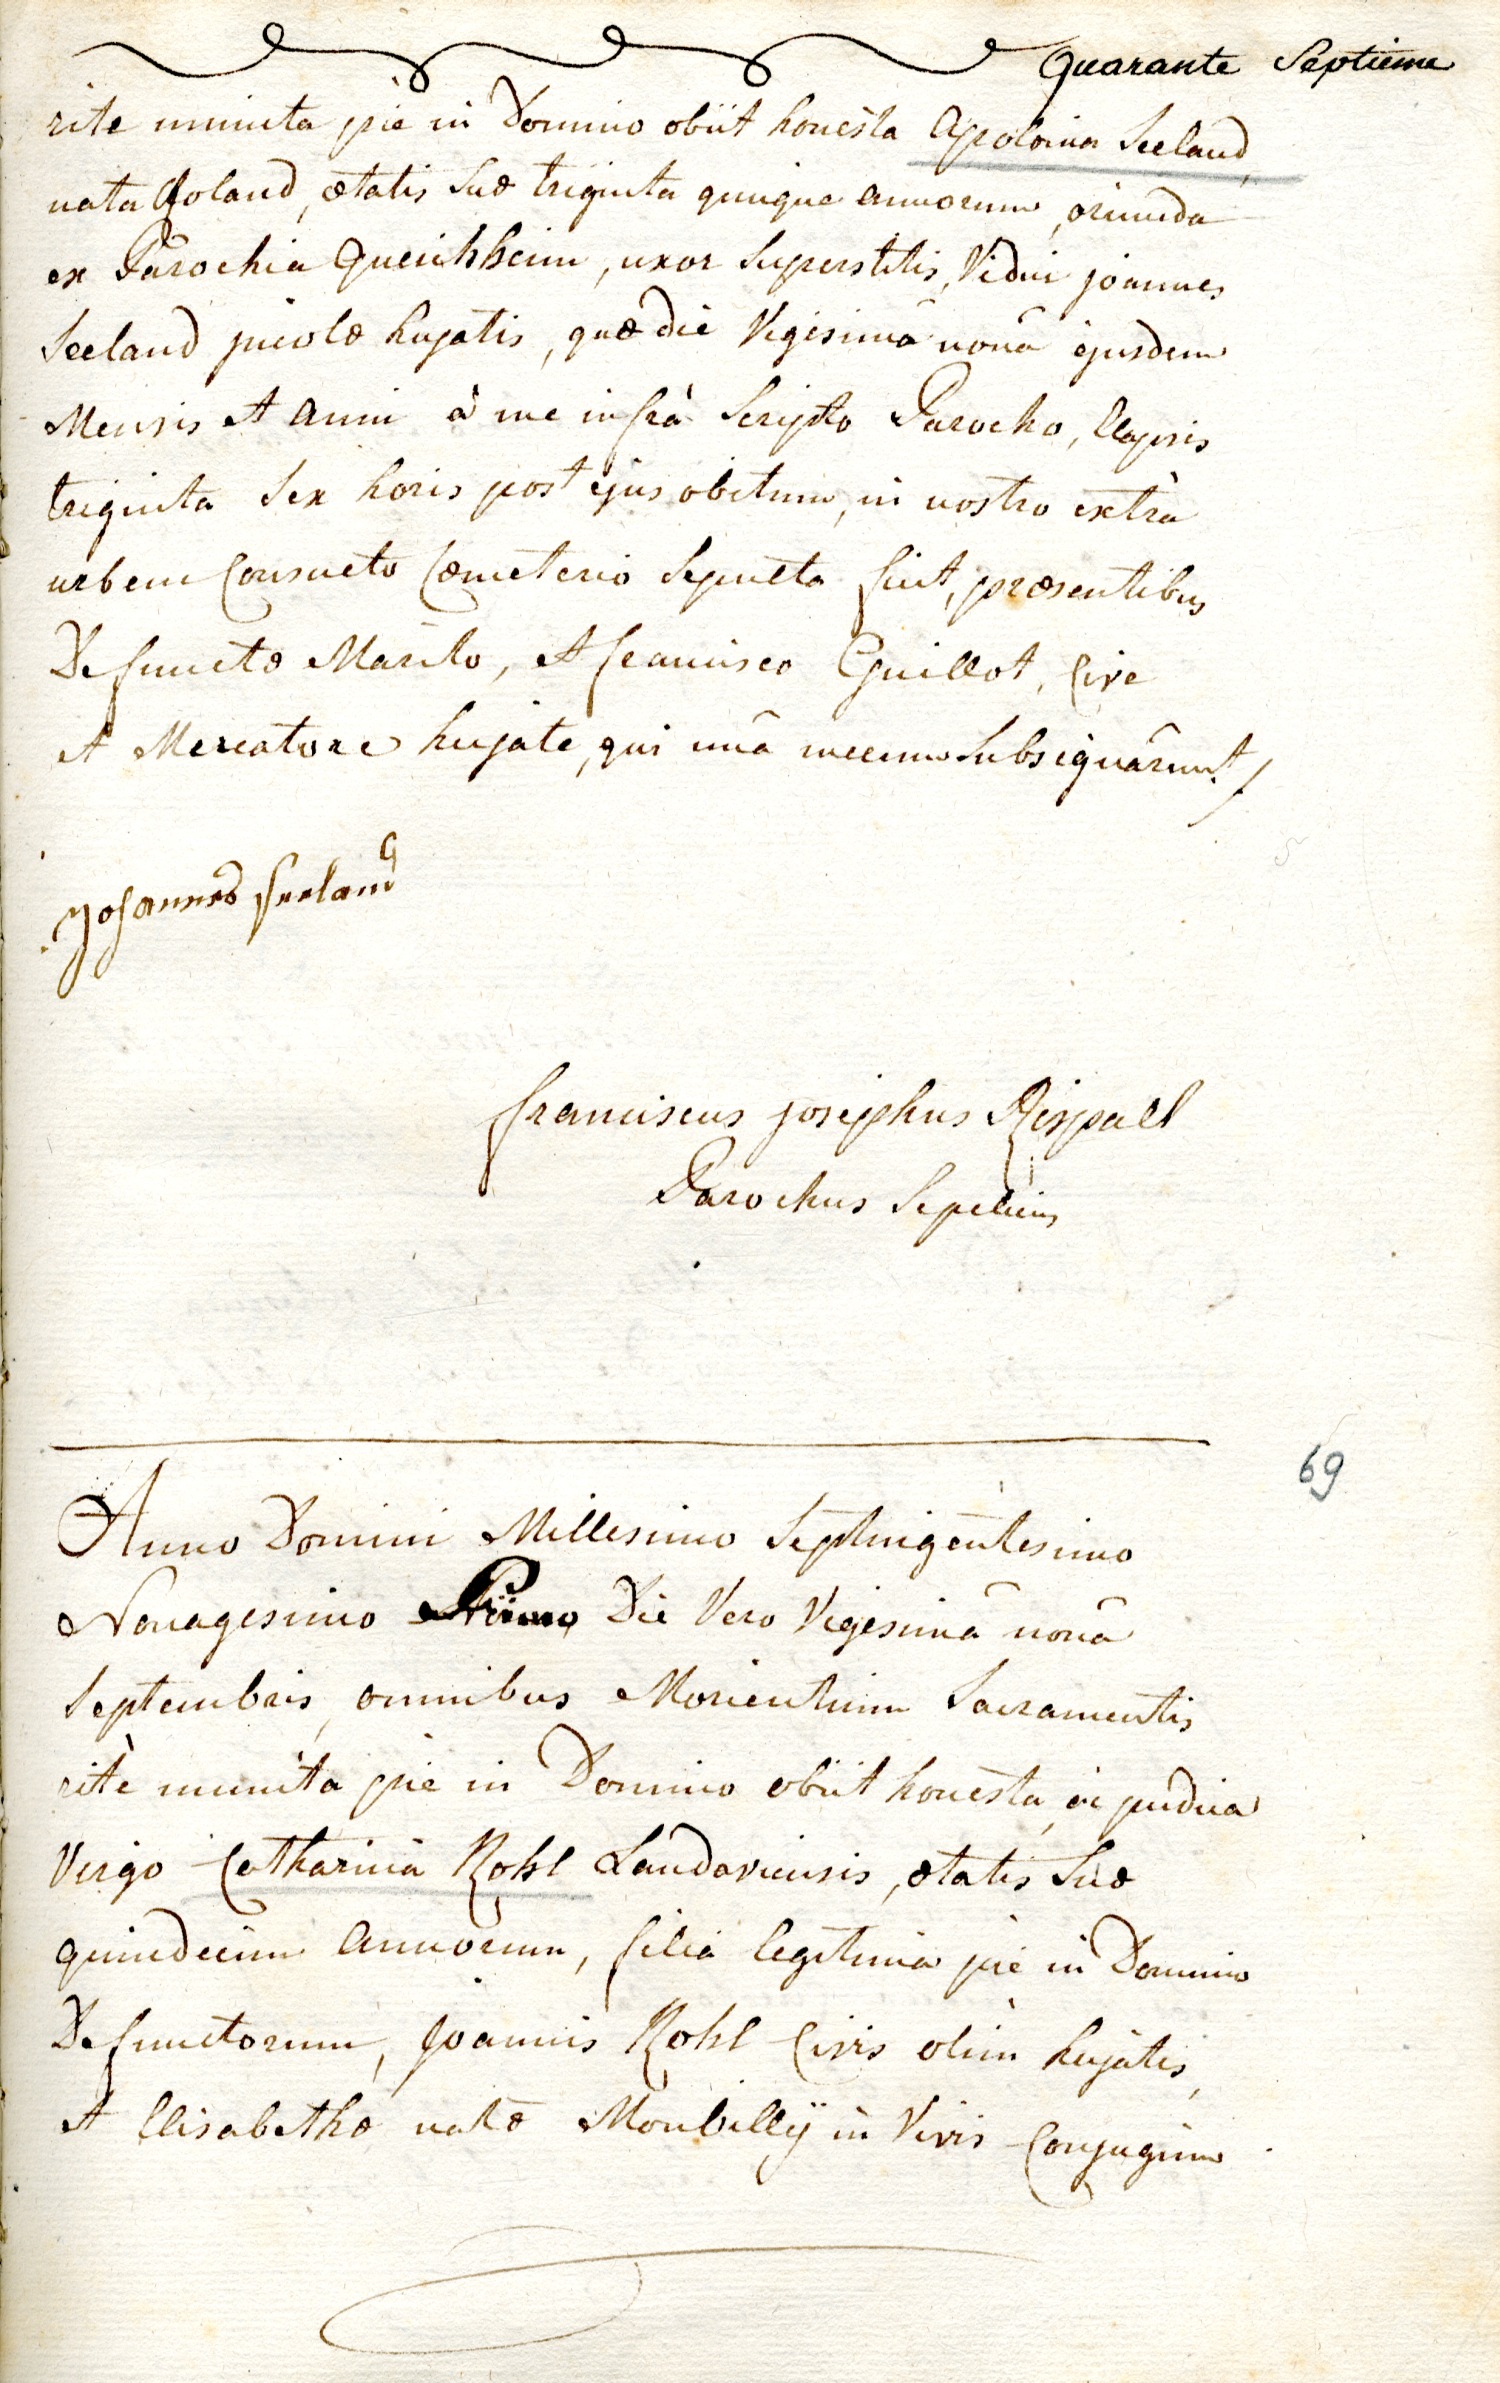 Quarante Septieme
rite munita pie in Domino obiit honesta Apolonia Seeland,
nata Roland, ætatis suæ triginta quinque annorum, oriunda
ex Parochia Queichheim, uxor superstitis Vidui joannes
Seeland incolæ hujatis, quæ die Vigesimâ nonâ ejusdem
Mensis et anni à me infrà scripto Parocho, elapsis
triginta sex horis post ejus obitum, in nostro extrà
urbem consueto cœmeterio sepulta fuit, præsentibus
Defunctæ Marito, et francisco Guillot, cive
et Mercatore hujate, qui unâ mecum subsignârunt./.
Johannes Seeland
franciscus josephus Rispall
Parochus sepeliens
69
Anno Domini Millesimo Septingentesimo
Nonagesimo Primo Die Vero Vigesimâ nonâ
Septembris, omnibus Morientium Sacramentis
ritè munita pie in Domino obiit honesta, ac pudica
Virgo Catharina Kohl Landaviensis, ætatis suæ
quindecim annorum, filia legitima pie in Domino
Defunctorum, Joannis Kohl civis olim hujatis,
et Elisabethæ natæ Monbillÿ in Vivis Conjugum